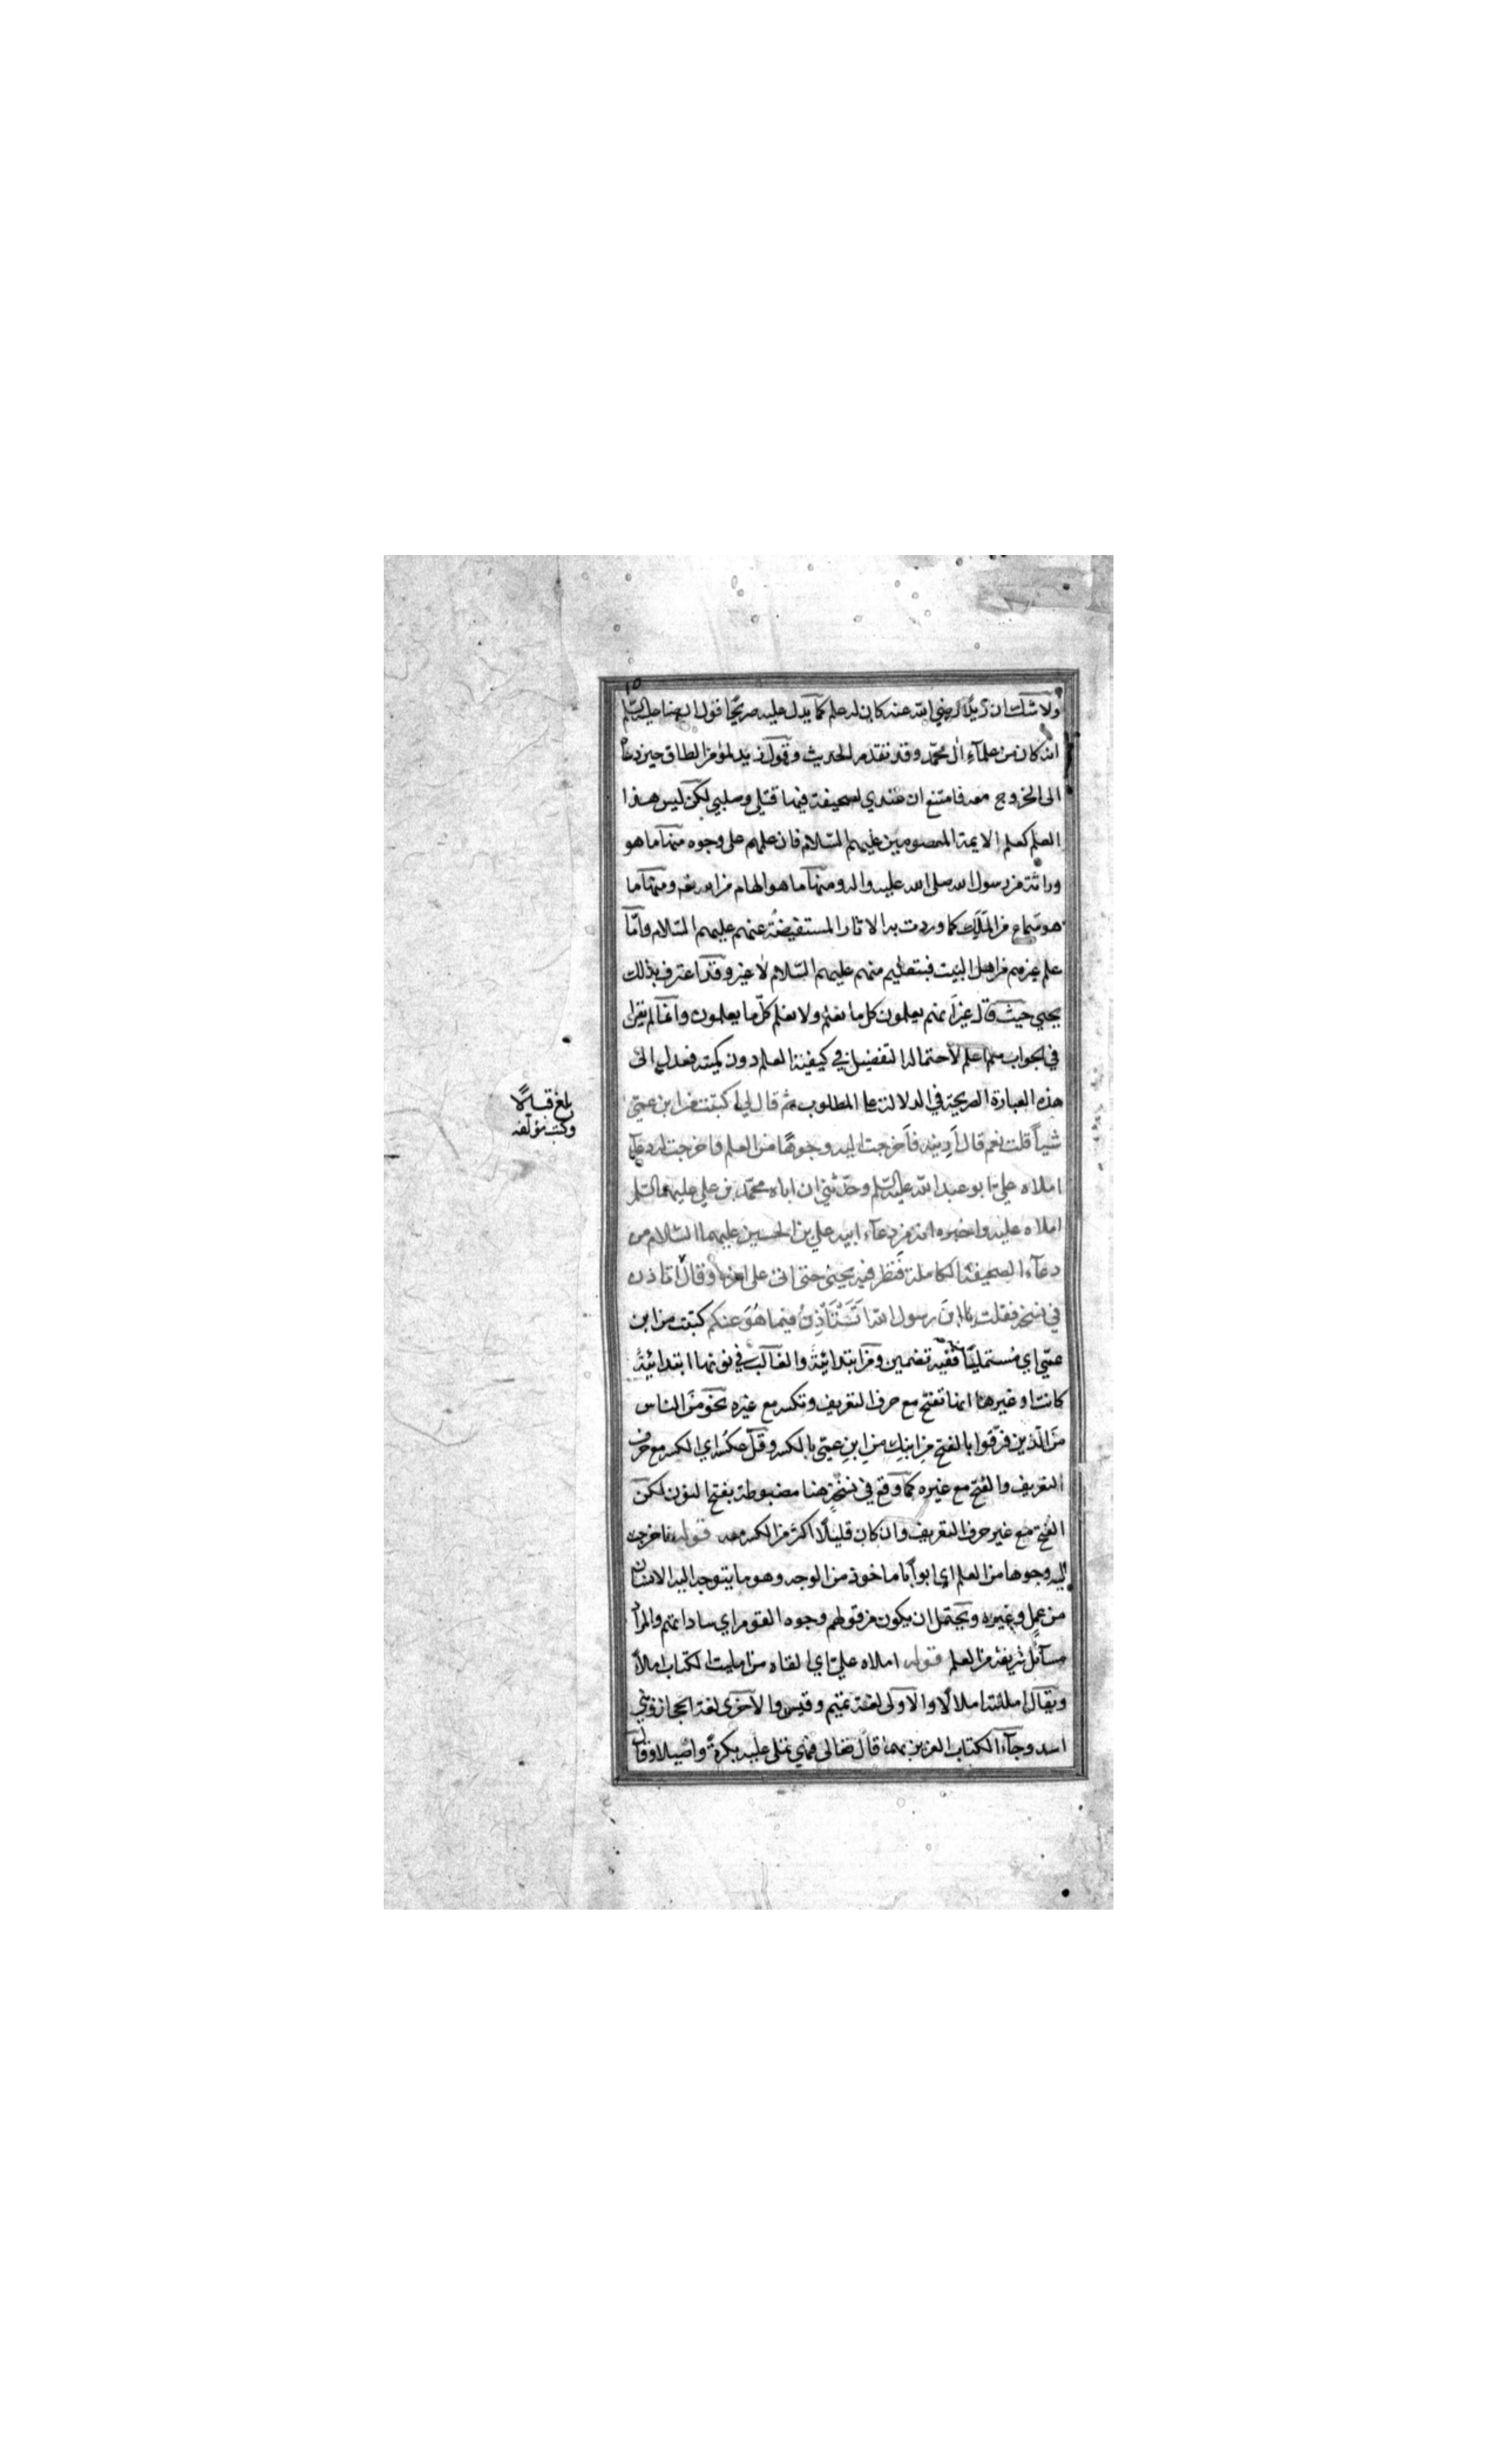 ولا شك ان زيدا رضي الله عنه كان له علم كما يدل عليه صريحا قول الرضا عليه السلم
انه كان من علماء ال محمد وقد تقدم الحديث وقول زيد لمؤمن الطاق حين دعاه
الى الخروج معه فامتنع ان عندي لصحيفة فيها قتلي وصلبي لكن ليس هذا
العلم كعلم الايمة المعصومين عليهم السلام فان علمهم على وجوه منها ما هو
وراثة من رسول الله صلى الله عليه واله ومنها ما هو الهام من الله تعه ومنها ما
هو سماع من الملك كما وردت به الاثار المستفيضة عنهم عليهم السلام واما
علم غيرهم من اهل البيت فبتعليم منهم عليهم السلام لا غير وقد اعترف بذلك
يحيى حيث قال غير انهم يعلمون كل ما نعلم ولا نعلم كل ما يعلمون وانما لم يقل
في الجواب هم اعلم لاحتماله التفضيل في كيفية العلم دون كميته فعدل الى
هذه العبارة الصريحة في الدلالة على المطلوب ثم قال لي اكتبت من ابن عمي
شيأ قلت نعم قال ارنيه فاخرجت اليه وجوها من العلم واخرجت له دعاء
املاه علي ابو عبد الله عليه السلم وحدثني ان اباه محمد بن علي عليهما السلم
املاه عليه واخبره انه من دعاء ابيه علي بن الحسين عليهما السلام من
دعاء الصحيفة الكاملة فنظر فيه يحيى حتى اتى على اخره وقال اتاذن
في نسخه فقلت يا ابن رسول الله اتستاذن فيما هو عنكم كتبت من ابن
عمي اي مستمليا ففيه تضمين ومن ابتدائية والغالب في نونها ابتدائية
كانت او غيرها انها تفتح مع حرف التعريف وتكسر مع غيره نحو من الناس
من الذين فرقوا بالفتح من ابنك من ابن عمي بالكسر وقل عكسه اي الكسر مع حرف
التعريف والفتح مع غيره كما وقع في نسخة هنا مضبوطة بفتح النون لكن
الفتح مع غير حرف التعريف وان كان قليلا اكثر من الكسر معه قوله فاخرجت
اليه وجوها من العلم اي ابوابا ماخوذ من الوجه وهو ما يتوجه اليه الانسان
من عمل وغيره ويحتمل ان يكون من قولهم وجوه القوم اي ساداتهم والمراد
مسائل شريفة من العلم قوله املاه علي اي القاه من امليت الكتاب املاء
ويقال امللته املالا والاولى لغة تميم وقيس والاخرى لغة الحجاز وبني
اسد وجاء الكتاب العزيز بهما قال تعالى فهي تملى عليه بكرة واصيلا وقال
بلغ قبالا
وكتب مؤلفه